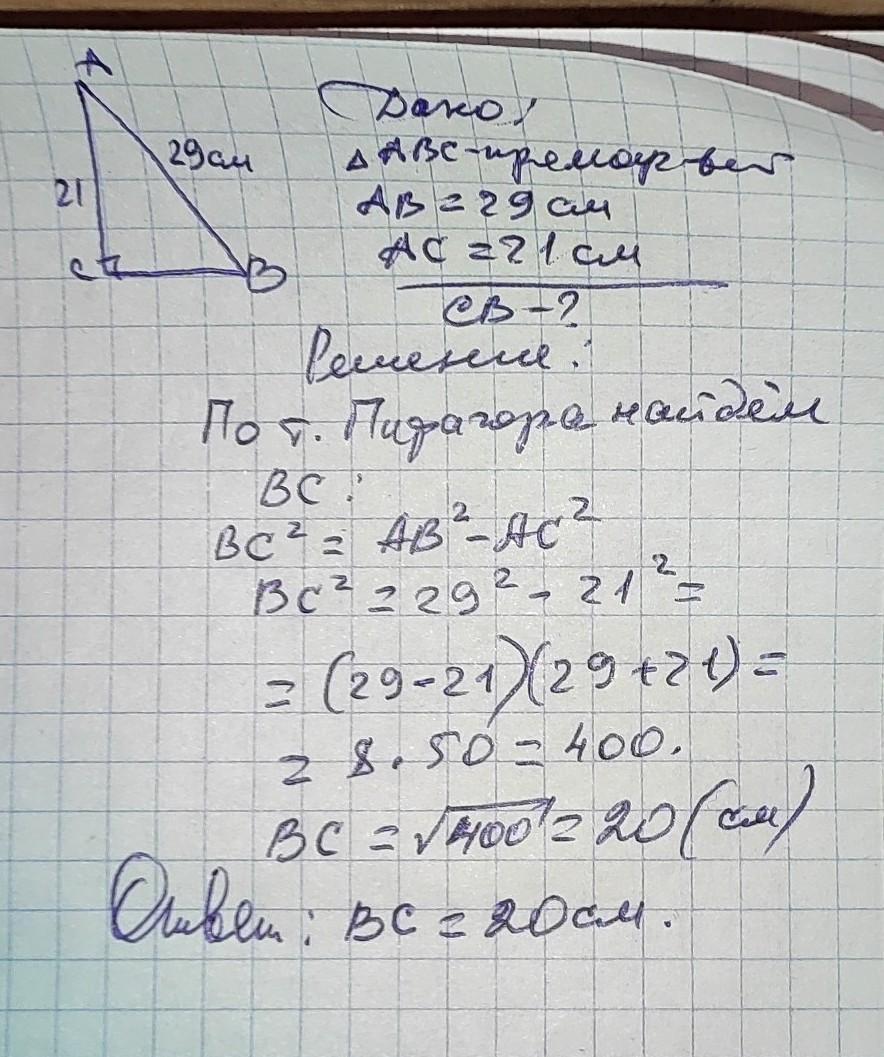 A
29см
21
C
B
Дано:
△ABC - прямоуг-ый
AB = 29 см
AC = 21 см
CB - ?
Решение:
По т. Пифагора найдём
BC:
BC² = AB² - AC²
BC² = 29² - 21² =
= (29-21)(29+21) =
= 8 · 50 = 400.
BC = √400 = 20 (см)
Ответ: BC = 20 см.